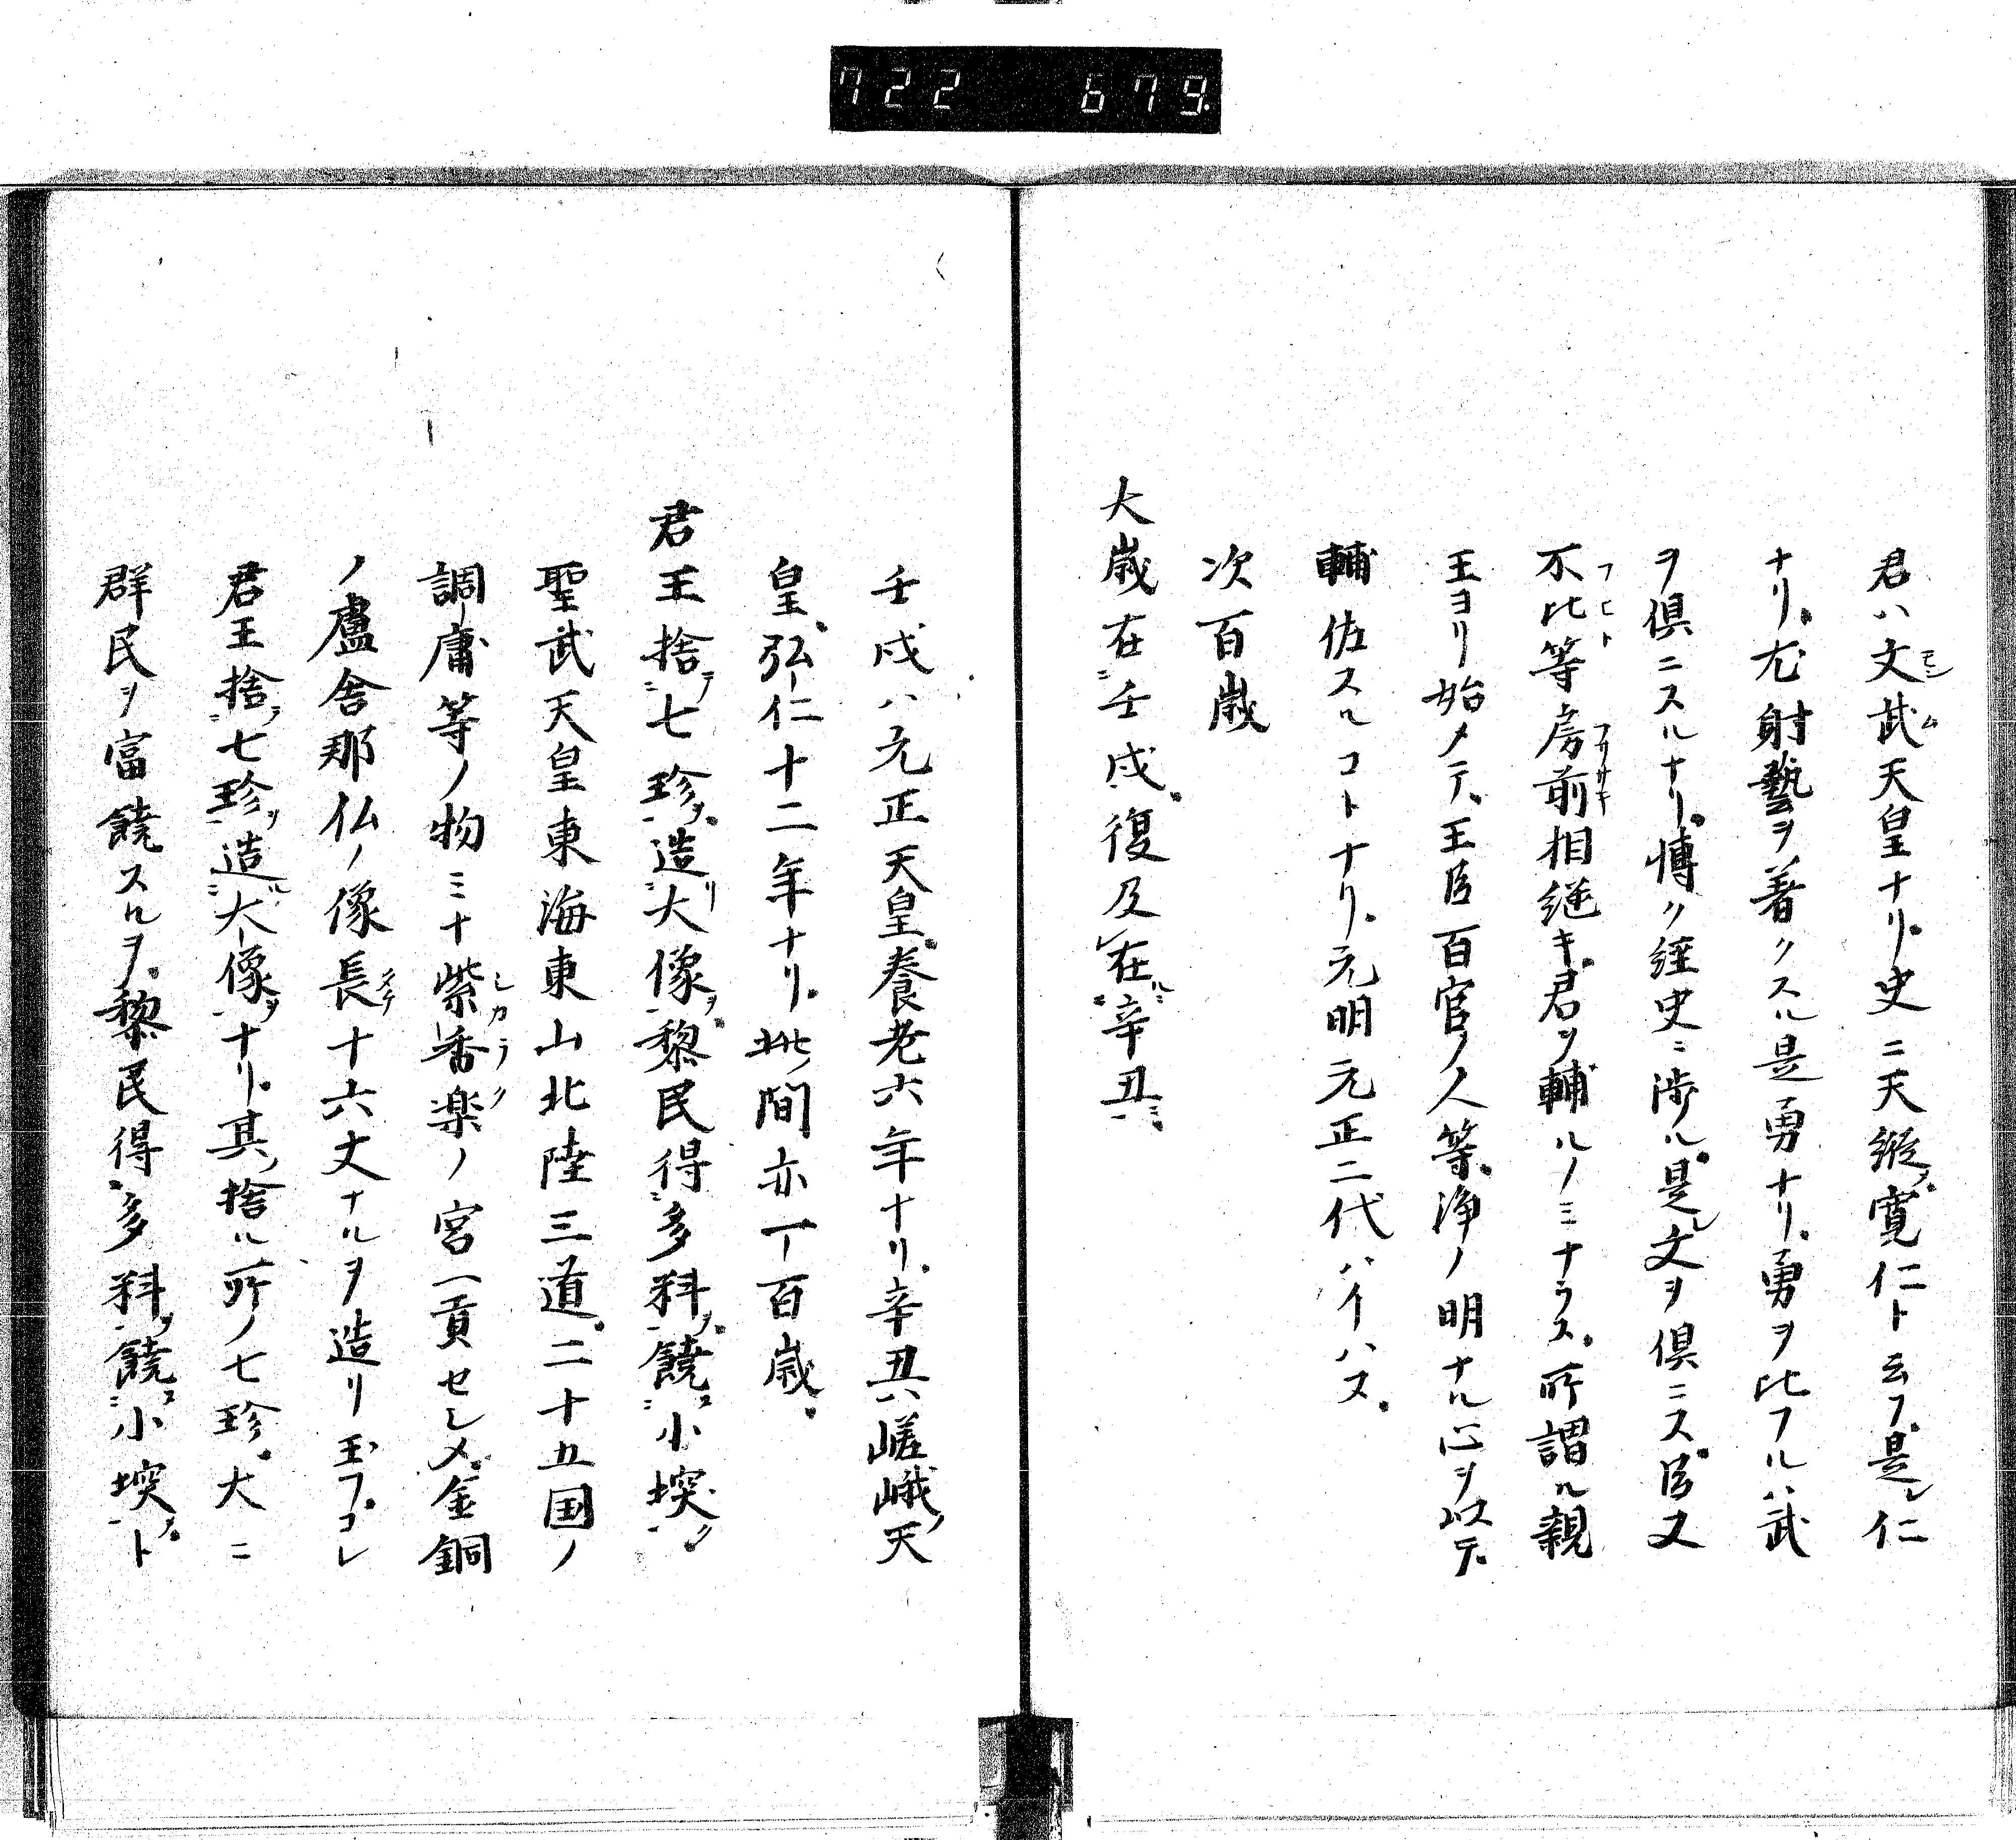 722 679.
君ハ文武天皇ナリ。史ニ天縦寛仁ト云フ。是レ仁
ナリ。尤射藝ヲ著クスル是勇ナリ。勇ヲ比フルハ武
ヲ倶ニスルナリ。博ク経史ニ渉ル。是レ文ヲ倶ニス。臣又
不比等房前相継キ。君ヲ輔ルノミナラス。所謂ル親
王ヨリ始メテ。王臣百官ノ人等。浄ノ明ナル心ヲ以テ。
輔佐スルコトナリ。元明元正二代ハイハス。
次百歳
大歳在ニ壬戌。復及在ルニ辛丑ニ。
壬戌ハ元正天皇。養老六年ナリ。辛丑ハ嵯峨ノ天
皇。弘仁十二年ナリ。此ノ間亦一百歳。
君王捨テ七珍ヲ。造リ大像ヲ。黎民得多科ヲ。饒ス小堗ク。
聖武天皇東海東山北陸三道。二十五国ノ
調庸等ノ物ミナ紫香楽ノ宮ヘ貢セシメ。金銅
ノ盧舎那仏ノ像長十六丈ナルヲ造リ玉フ。コレ
君王捨テ七珍ヲ造ル大像ヲナリ。其ノ捨ル所ノ七珍。大ニ
群民ヲ富饒スルヲ。黎民得多科ヲ饒ス小堗ヲ。ト